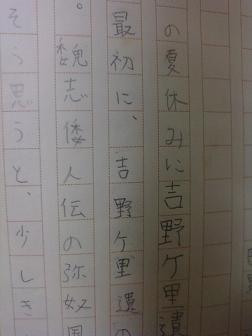 の夏休みに吉野ケ里遺
最初に、吉野ケ里遺の
。魏志倭人伝の弥奴国
そう思うと、少しき